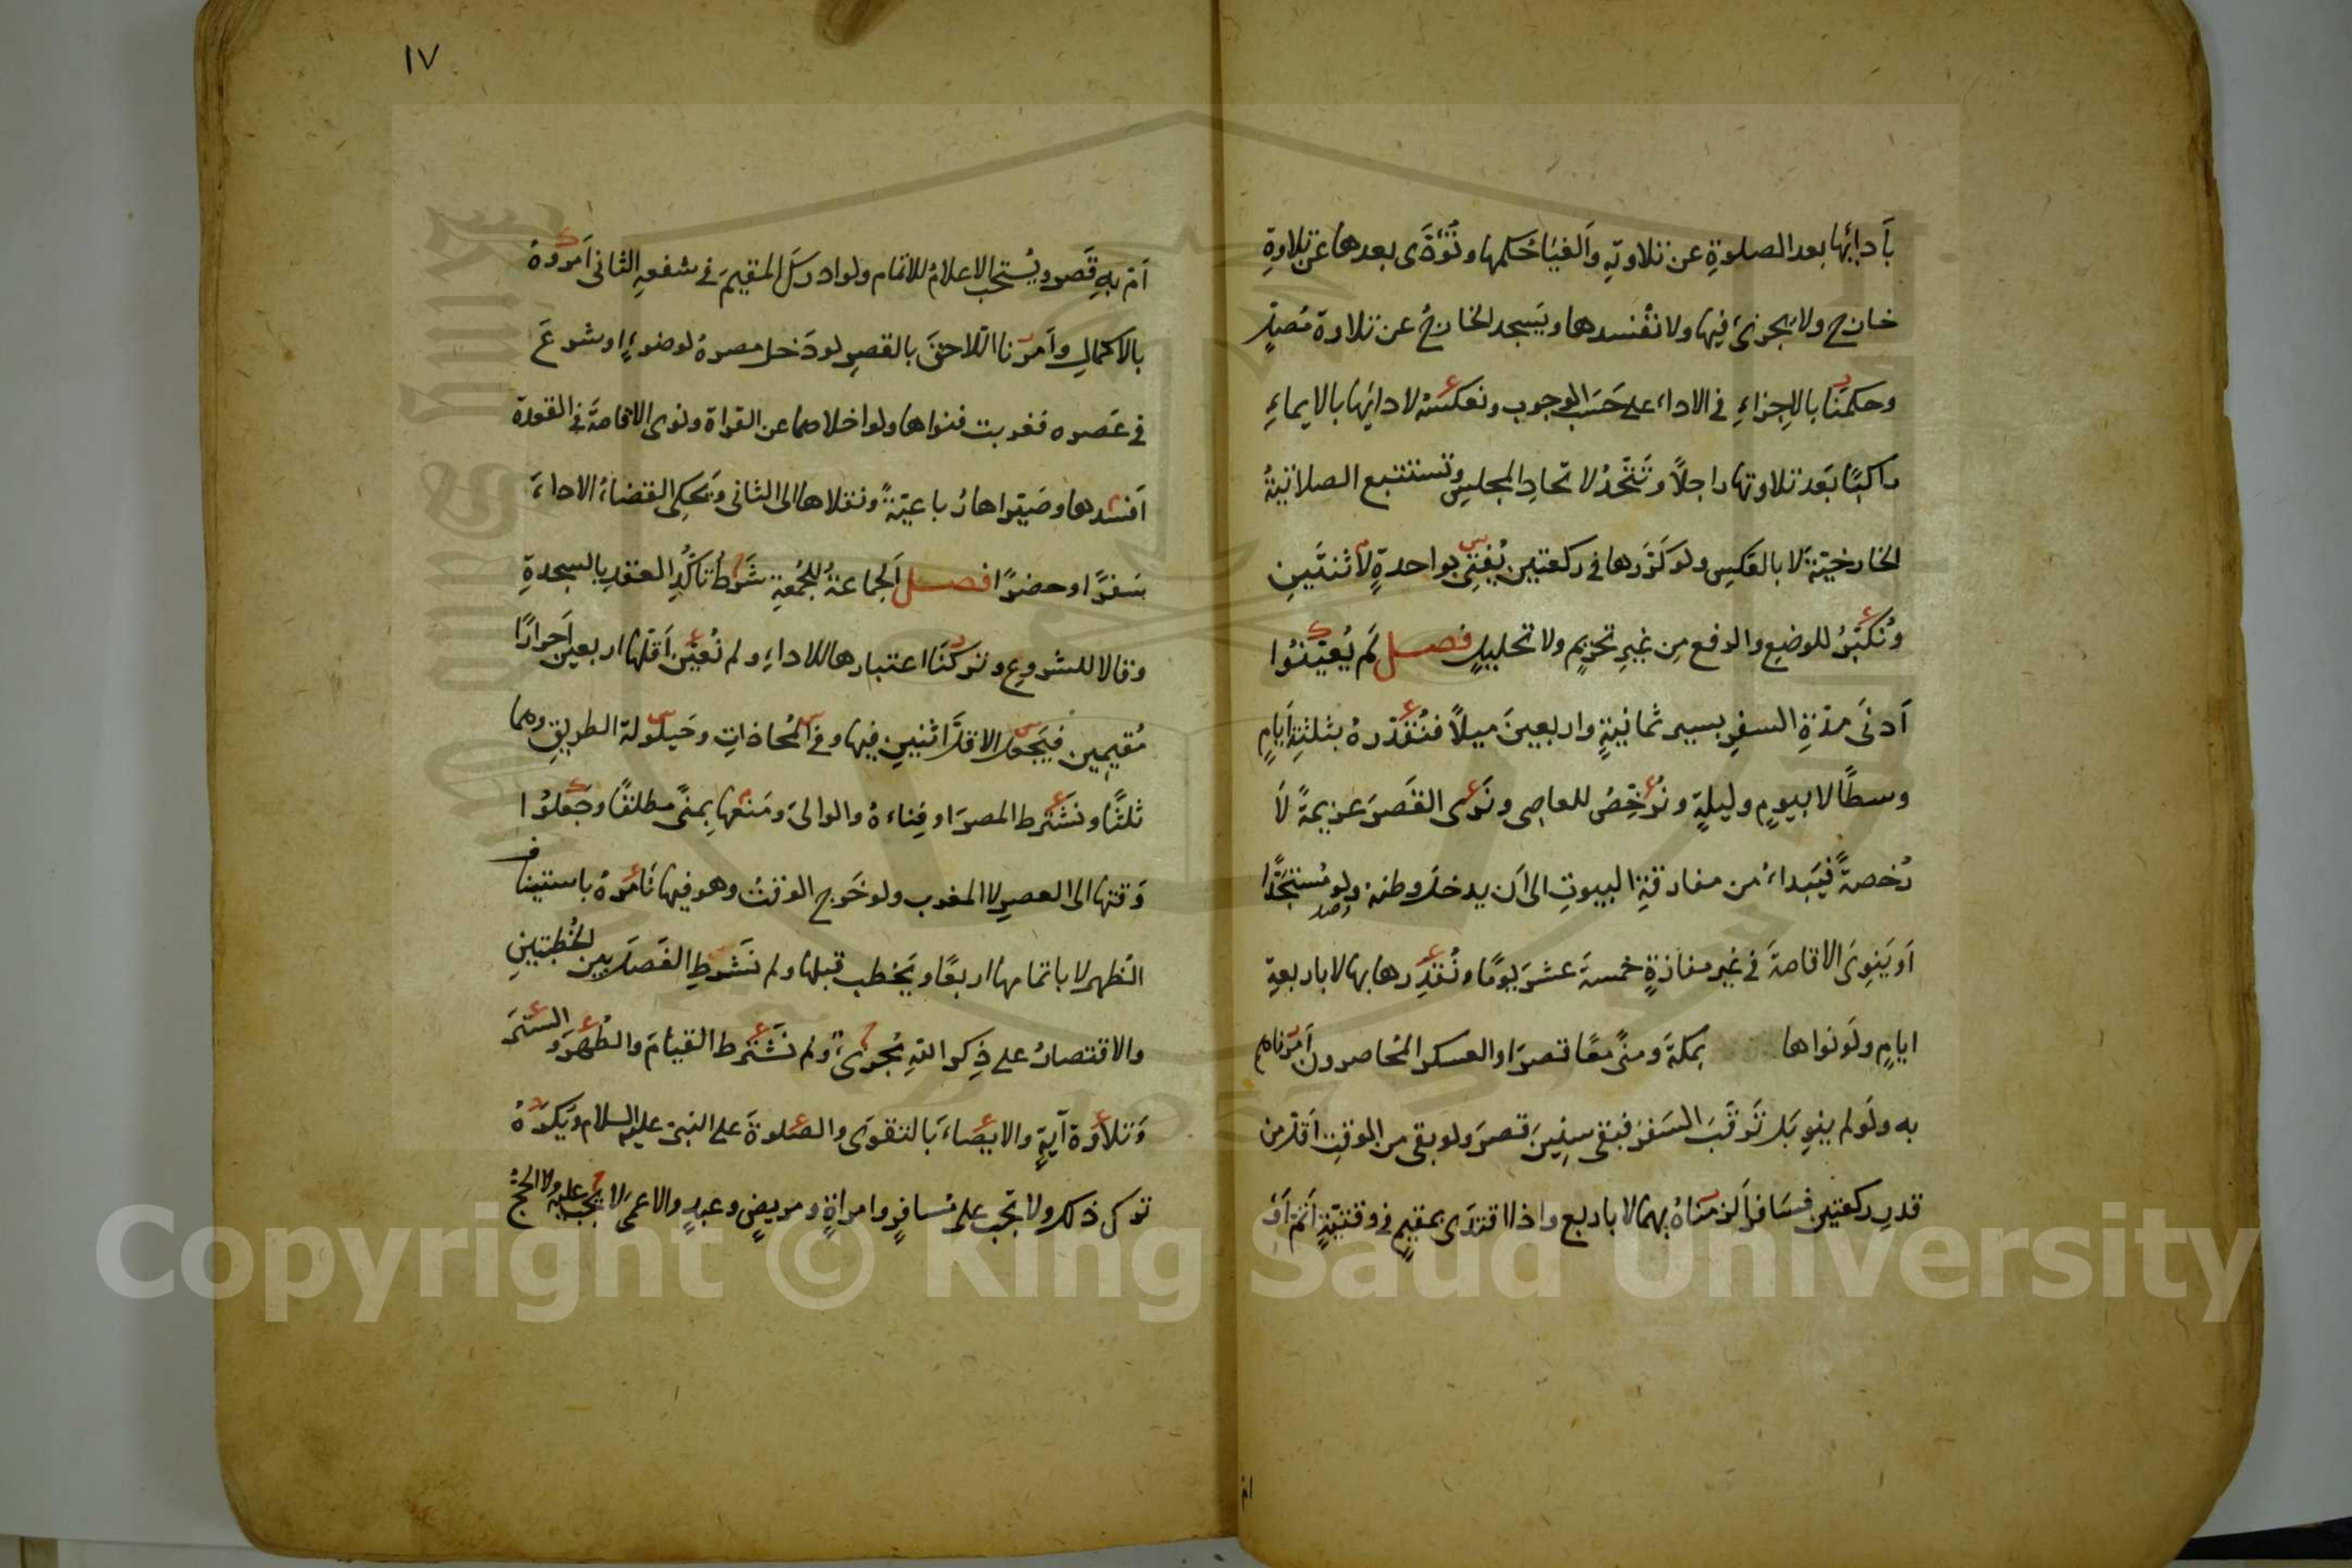 بأدائها بعد الصلوة عن تلاوته وألغينا حكمها وتؤدى بعدها عن تلاوة
خارج ولا تجزئ فيها ولا نفسدها ويسجد الخارج عن تلاوة مصل
وحكمنا بالإجزاء في الاداء على حسب الوجوب ونعكسه لادائها بالايماء
راكبا بعد تلاوتها راجلا وتتحد لاتحاد المجلس وتستتبع الصلاتية
الخارجية لا بالعكس ولو كررها في ركعتين يفتى بواحدة لا ثنتين
ونكبر للوضع والرفع من غير تحريم ولا تحليل فصل لم يعينوا
أدنى مدة السفر بسير ثمانية واربعين ميلا فنقدره بثلثة أيام
وسطا لا بيوم وليلة ونرخص للعاصى ونرى القصر عزيمة لا
رخصة فيبداء من مفارقة البيوت الى أن يدخل وطنه ولو مستجدا
أو ينوى الاقامة في غير مفازة خمسة عشر يوما ونقدرها بها لا باربعة
ايام ولو نواها بمكة ومنى معا قصر او العسكر المحاصرون أمرناهم
به ولو لم ينو بل ترقب السفر فبقى سنين قصر ولو بقى من الوقت أقل من
قدر ركعتين فسافر ألزمناه بهما لا باربع واذا اقتدى بمقيم في وقتية أتم أو
ام
١٧
أم به قصر ويستحب الاعلام للاتمام ولو ادرك المقيم في شفعه الثانى أمروه
بالاكمال وأمرنا اللاحق بالقصر لو دخل مصره لوضوء او شرع
في عصره فغربت فنواها ولو اخلاهما عن القراة ونوى الاقامة في القعدة
أفسدها وصيراها رباعية ونقلاها الى الثانى ويحكى القضاء الاداء
سفرا او حضرا فصل الجماعة للجمعة شرط تأكد العقد بالسجدة
وقالا للشروع وتركنا اعتبارها للاداء ولم نعين أقلها اربعين أحرارا
مقيمين فيجعل الاقل اثنين فيها وفي المحاذات وحيلولة الطريق وهما
ثلثا ونشترط المصر او فناءه والوالى ومنعها بمنى مطلقا وجعلوا
وقتها الى العصر لا المغرب ولو خرج الوقت وهو فيها نأمره باستيناف
الظهر لا باتمامها اربعا ويخطب قبلها ولم نشرط الفصل بين الخطبتين
والاقتصار على ذكر الله مجزئ ولم نشترط القيام والطهر والستر
وتلاوة آية والايصاء بالتقوى والصلوة على النبى عليه السلام ويكره
ترك ذلك ولا تجب على مسافر وامراة ومريض وعبد والاعمى لا تجب عليه ولا الحج
Copyright © King Saud University